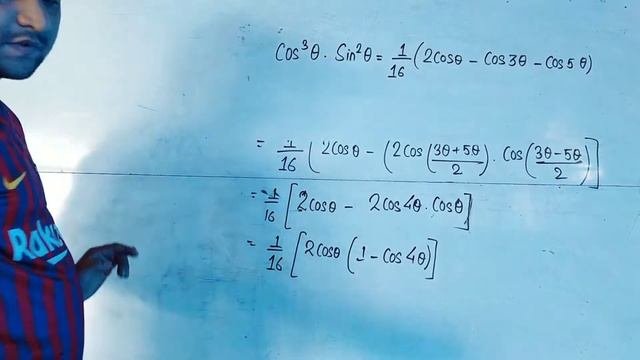 Cos³θ · Sin²θ = 1/16 (2Cosθ − Cos3θ − Cos5θ)
= 1/16 [2Cosθ − (2Cos (3θ+5θ/2) · Cos (3θ−5θ/2)]
= 1/16 [2Cosθ − 2Cos4θ · Cosθ]
= 1/16 [2Cosθ (1 − Cos4θ)]